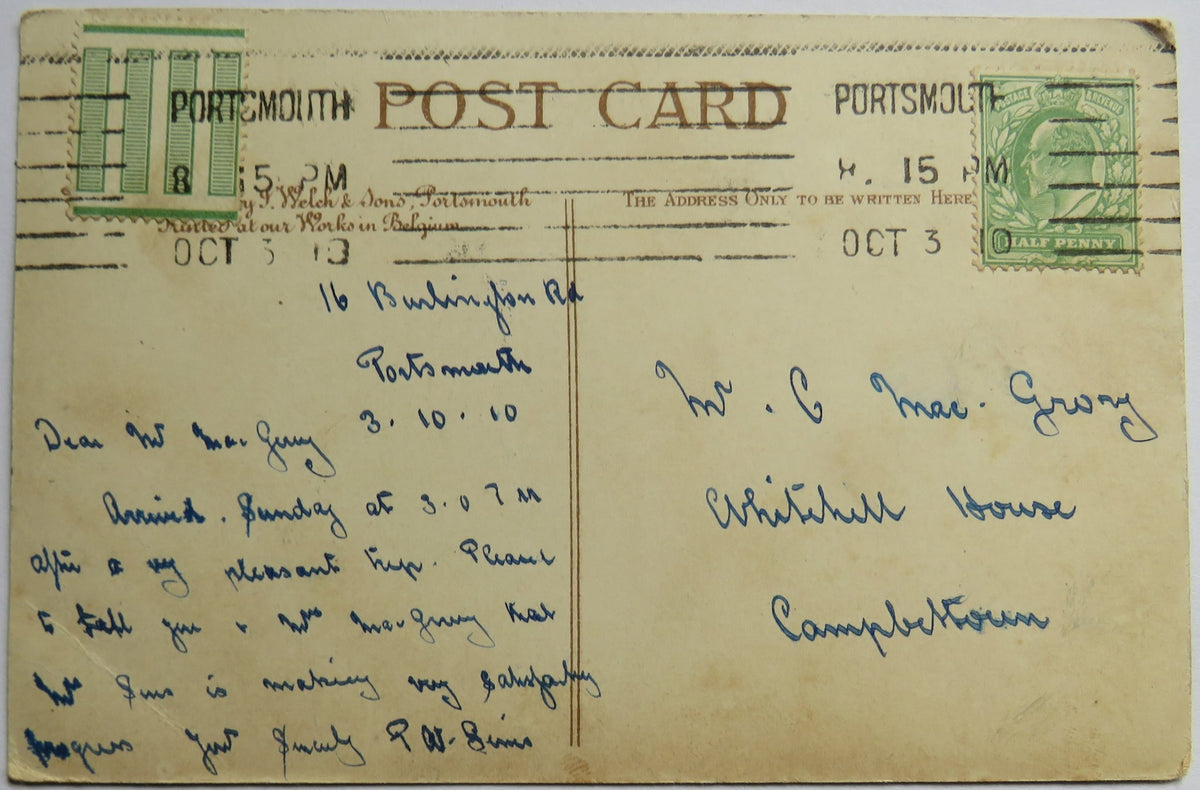 PORTSMOUTH
8 15 PM
OCT 3 10
POST CARD
PORTSMOUTH
15 PM
OCT 3 10
POSTAGE REVENUE
HALF PENNY
y J. Welch & Sons, Portsmouth
Printed at our Works in Belgium
THE ADDRESS ONLY TO BE WRITTEN HERE
16 Burlington Rd
Portsmouth
3.10.10
Dear Mr Mac. Grory
Arrived. Sunday at 3.0
after a very pleasant trip. Pleased
to tell you & Mrs Mac. Grory that
Mrs Sims is making very satisfactory
progress Yours Sincerely P W. Sims
Mr. C Mac. Grory
Whitehill House
Campbeltown